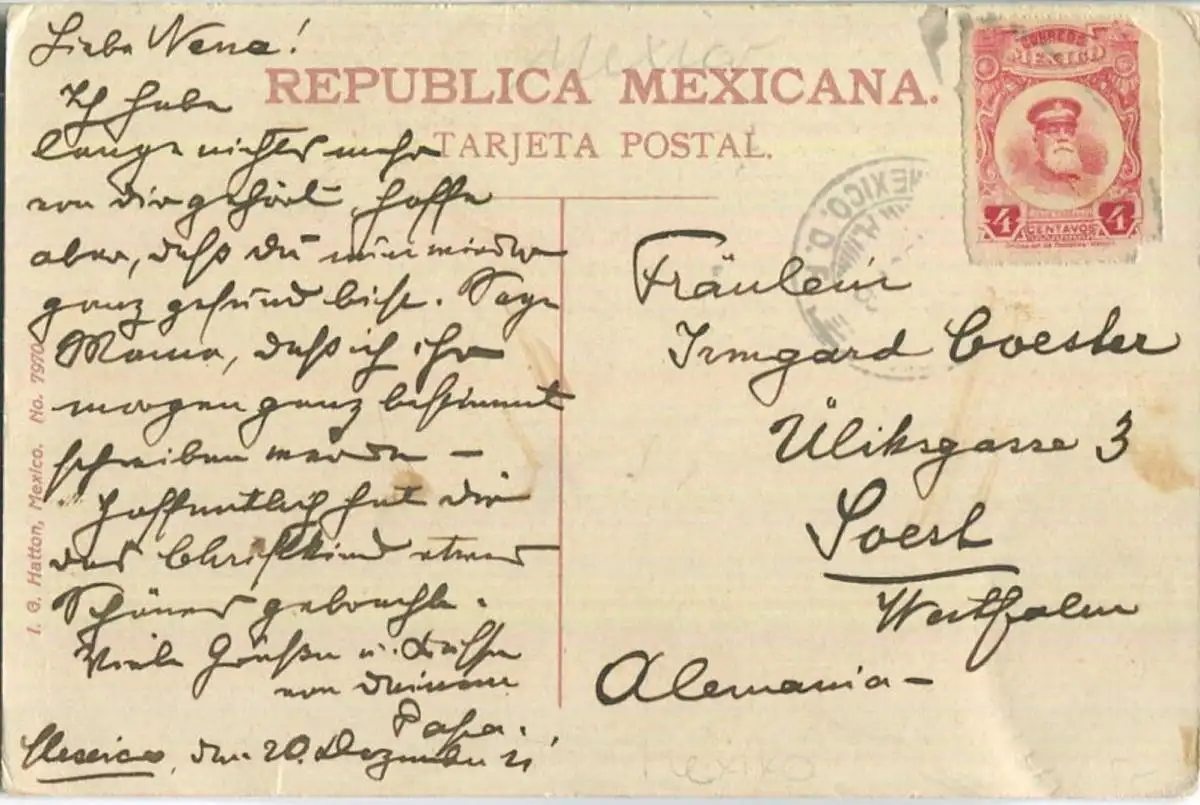 Liebe Nena!
Ich habe
lange nichts mehr
von dir gehört, hoffe
aber, daß du nun wieder
ganz gesund bist. Sage
Mama, daß ich ihr
morgen ganz bestimmt
schreiben werde –
Hoffentlich hat dir
das Christkind etwas
Schönes gebracht.
Viele Grüße u. Küsse
von deinem
Papa.
Mexico, den 20. Dezember 21
I. G. Hatton, Mexico. No. 7970
Mexico
REPUBLICA MEXICANA.
TARJETA POSTAL.
CORREOS
MEXICO
4 CENTAVOS 4
MEXICO, D. F.
Fräulein
Irmgard Coester
Üliksgasse 3
Soest
Westfalen
Alemania –
Mexiko